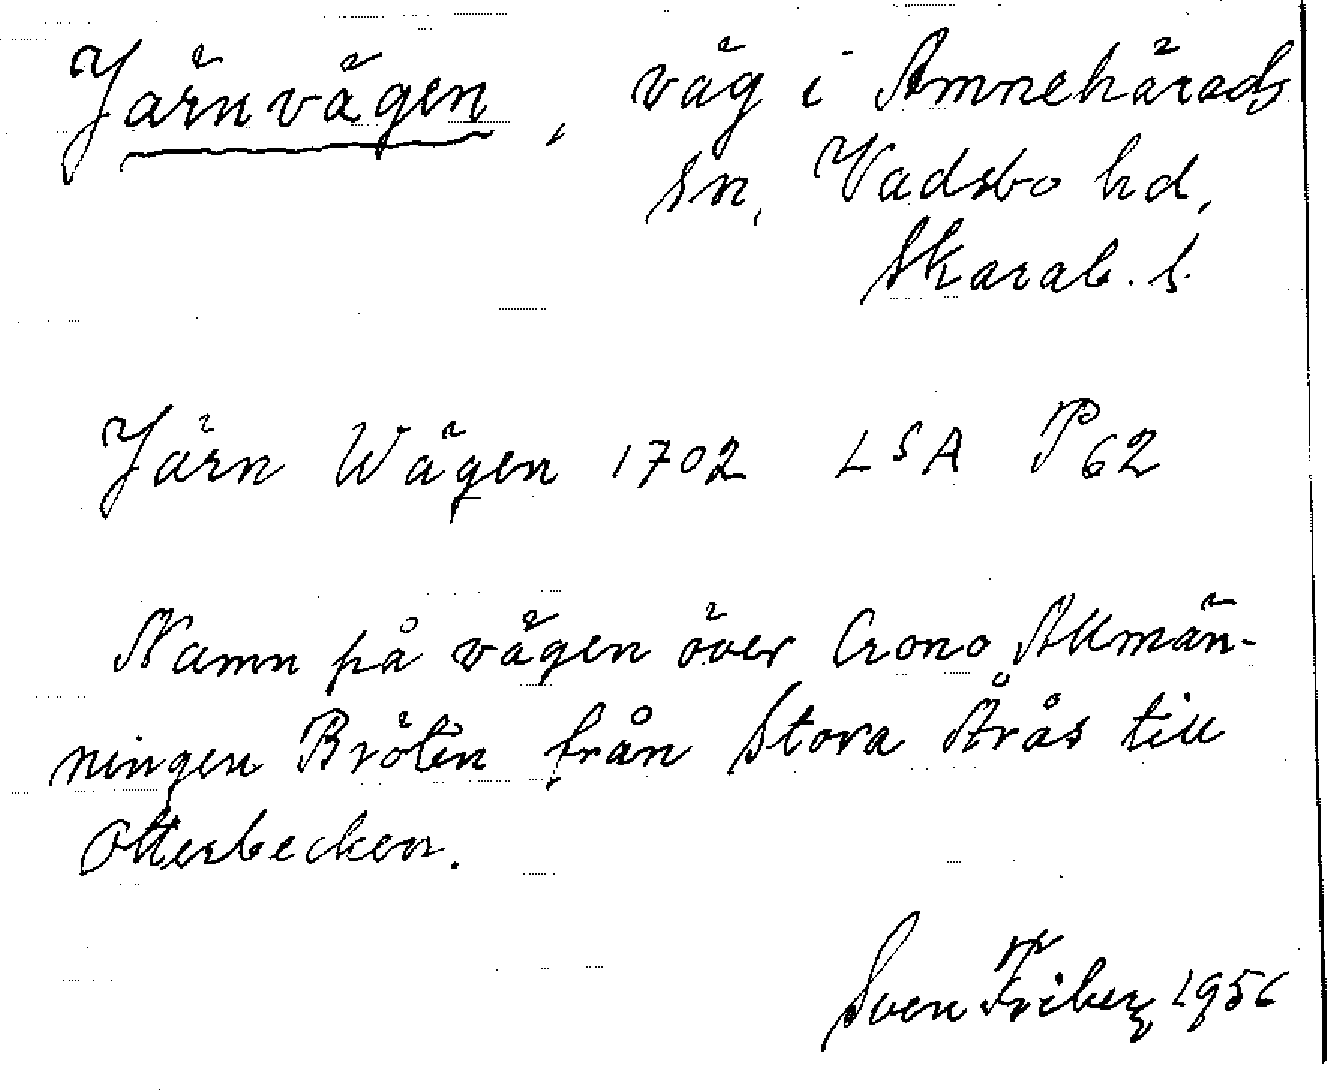 Järnvägen, väg i Amnehärads
sn, Vadsbo hd,
Skarab. l.
Järn Wägen 1702 LSA P62
Namn på vägen över Crono Allmän-
ningen Bröten från Stora Årås till
Otterbecken.
Sven Friberg 1956